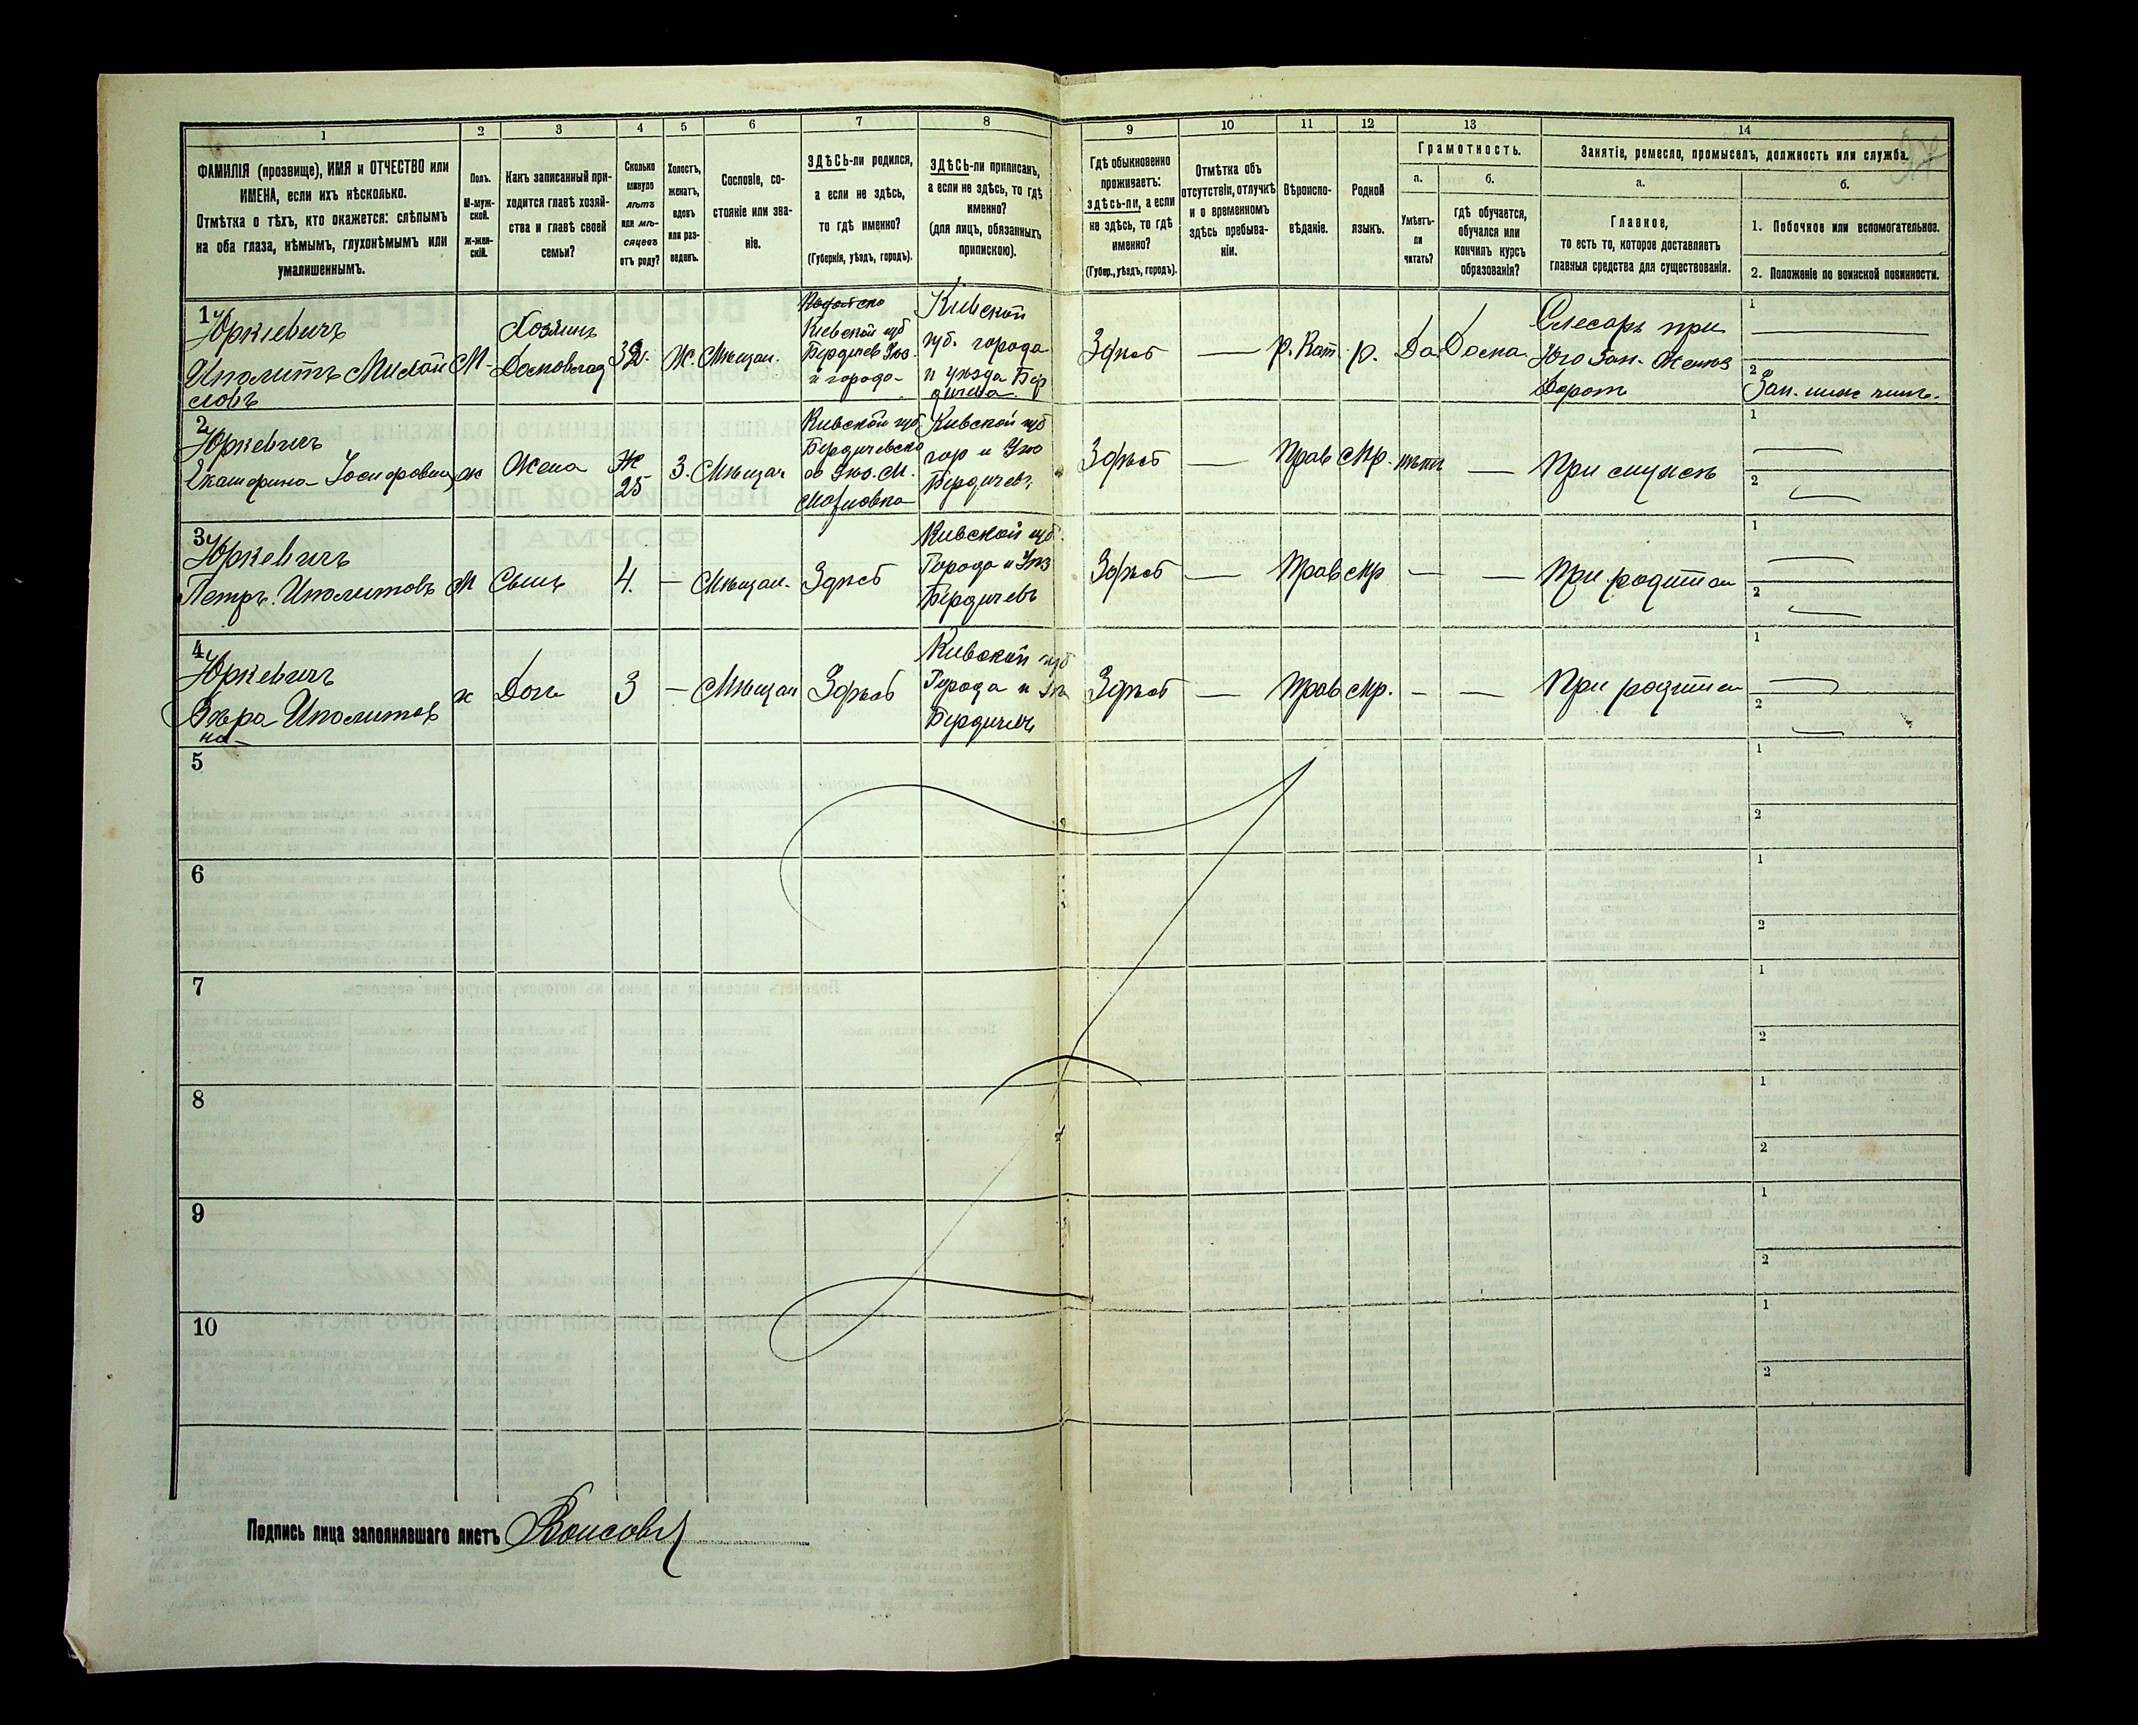 1 2 3 4 5 6 7 8 9 10 11 12 13 14
ФАМИЛІЯ (прозвище), ИМЯ и ОТЧЕСТВО или
ИМЕНА, если ихъ нѣсколько.
Отмѣтка о тѣхъ, кто окажется: слѣпымъ
на оба глаза, нѣмымъ, глухонѣмымъ или
умалишеннымъ.
Полъ.
М-муж-
ской.
Ж-жен-
скій.
Какъ записанный при-
ходится главѣ хозяй-
ства и главѣ своей
семьи?
Сколько
минуло
лѣтъ
или мѣ-
сяцевъ
отъ роду?
Холостъ,
женатъ,
вдовъ
или раз-
веденъ.
Сословіе, со-
стояніе или зва-
ніе.
ЗДѢСЬ-ли родился,
а если не здѣсь,
то гдѣ именно?
(Губернія, уѣздъ, городъ).
ЗДѢСЬ-ли приписанъ,
а если не здѣсь, то гдѣ
именно?
(для лицъ, обязанныхъ
припискою).
Гдѣ обыкновенно
проживаетъ:
здѣсь-ли, а если
не здѣсь, то гдѣ
именно?
(Губер., уѣздъ, городъ).
Отмѣтка объ
отсутствіи, отлучкѣ
и о временномъ
здѣсь пребыва-
ніи.
Вѣроиспо-
вѣданіе.
Родной
языкъ.
Грамотность.
а.
Умѣетъ-
ли
читать?
б.
гдѣ обучается,
обучался или
кончилъ курсъ
образованія?
Занятіе, ремесло, промыселъ, должность или служба.
а.
Главное,
то есть то, которое доставляетъ
главныя средства для существованія.
б.
1. Побочное или вспомогательное.
2. Положеніе по воинской повинности.
1
Юркіевичъ
Иполитъ
словъ
М
Хозяинъ
32.
Ж.
Мѣщан.
Кіевской губ
Бердичев Уѣз.
и города
Кіевской
губ. города
и уѣзда Бер
дичева.
Здѣсь
—
р. Кат.
р.
Да.
Дома
Слесарь при
Юго Зап. Желѣз
Дорогѣ
1
2
Зап. ниж чинъ.
2
Юркевичъ
Екатерина Іосифовна
ж
Жена
25
З.
Мѣщан
Кивской губ
Бердичевско
го Уѣз. М.
Кивской губ
гор и Уѣз
Бердичевъ
Здѣсь
—
Прав
Мр.
нѣтъ
—
При мужѣ
1
2
3
Юркевичъ
Петръ. Иполитовъ
М
Сынъ
4.
—
Мѣщан.
Здѣсь
Кивской губ.
Города и Уѣз
Бердичевъ
Здѣсь
—
Прав
Мр
—
—
При родител
1
2
4
Юркевичъ
Вѣра Иполитов
на
ж
Дочь
3
—
Мѣщан
Здѣсь
Кивской губ
Города и Уѣз
Бердичевъ
Здѣсь
—
Прав
Мр.
—
—
При родител
1
2
5
1
2
6
1
2
7
1
2
8
1
2
9
1
2
10
1
2
Подпись лица заполнявшаго листъ